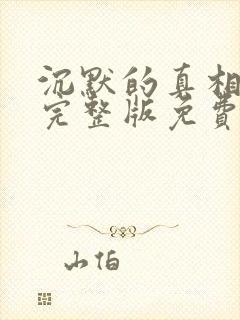 沉默的真相
完整版免費
山伯